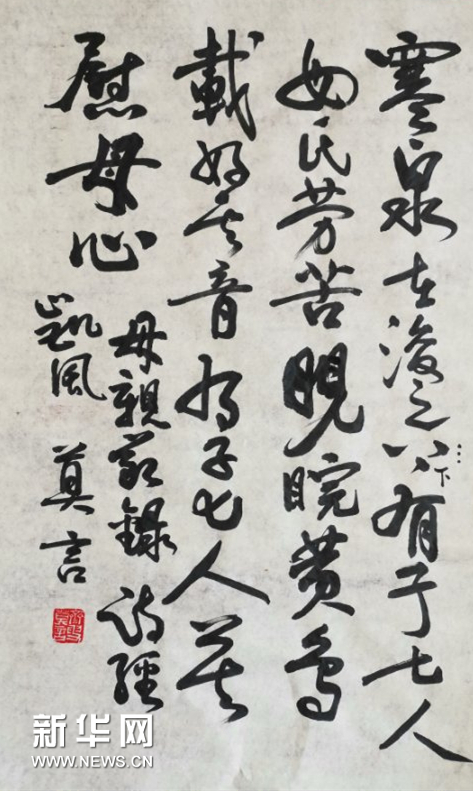 寒泉在浚之八下有子七人
母氏劳苦睍睆黄鸟
載好其音有子七人莫
慰母心
母親節錄詩經
凱風 莫言
新华网
WWW.NEWS.CN